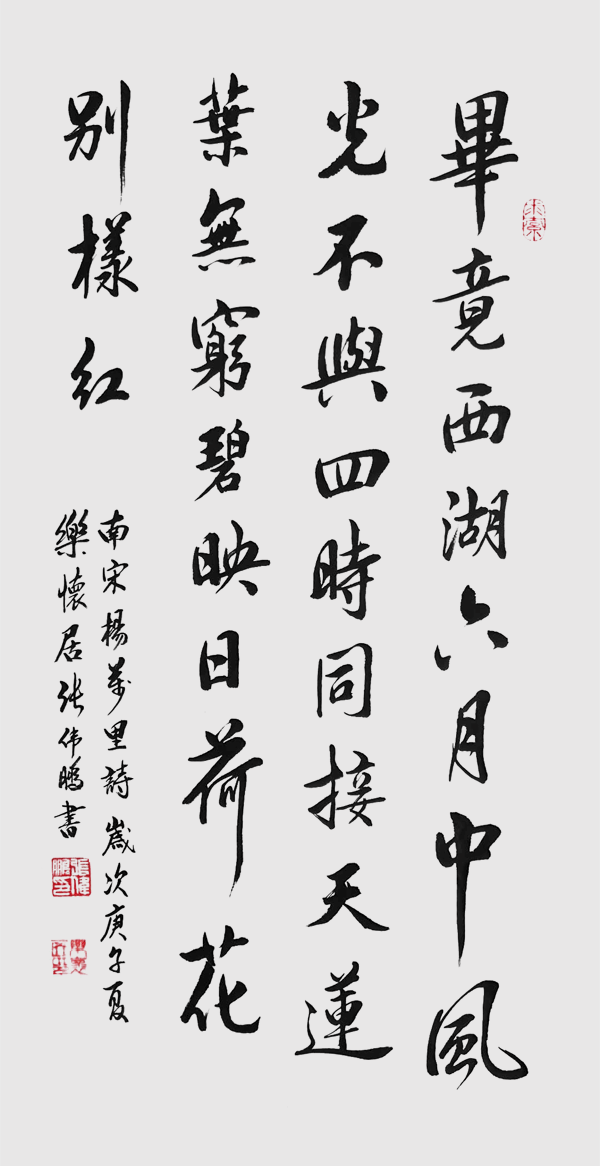 畢竟西湖六月中風
光不與四時同接天蓮
葉無窮碧映日荷花
別樣紅
南宋楊萬里詩歲次庚子夏
樂懷居张伟鵬書